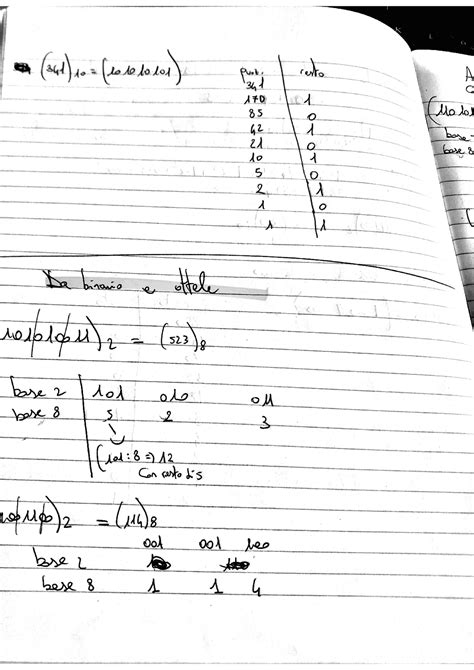 (341)10 = (10 10 10 101)
quoz. resto
341
170 1
85 0
42 1
21 0
10 1
5 0
2 1
1 0
1 1
Da binario e ottale
101|010|011)2 = (523)8
base 2 101 010 011
base 8 5 2 3
(101:8 => 12
Con resto di 5
)2 = (114)8
001 001 100
base 2
base 8 1 1 4
(10101
base
base 8